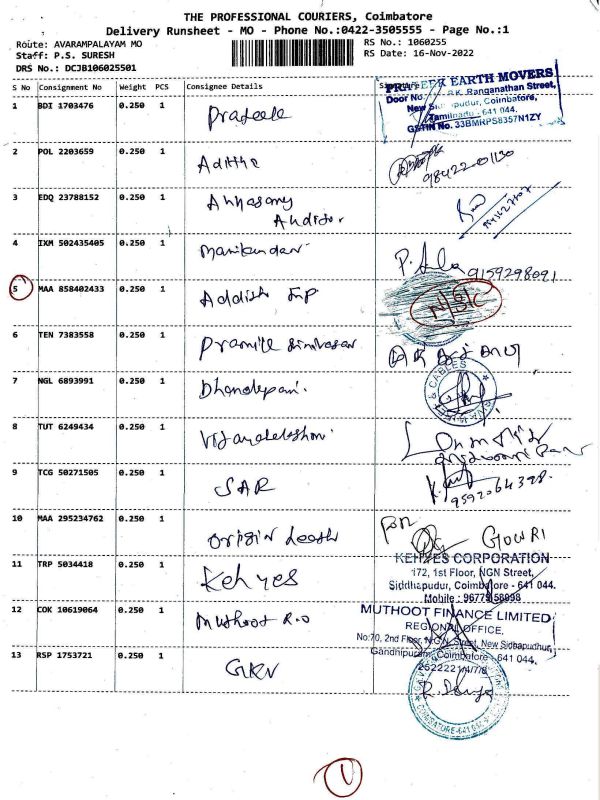 THE PROFESSIONAL COURIERS, Coimbatore
Delivery Runsheet - MO - Phone No.:0422-3505555 - Page No.:1
Route: AVARAMPALAYAM MO
RS No.: 1060255
Staff: P.S. SURESH
RS Date: 16-Nov-2022
DRS No.: DCJB106025501
S No Consignment No Weight PCS Consignee Details
1 BDI 1703476 0.250 1 Pradeele
PRADEEK EARTH MOVERS
Door No. Ranganathan Street,
New Sidhapudur, Coimbatore,
Tamilnadu - 641 044.
GSTIN No. 33BMRPS8357N1ZY
2 POL 2203659 0.250 1 Adithe
98422-01130
3 EDQ 23788152 0.250 1 Annasamy
Auditor
4 IXM 502435405 0.250 1 Manikandan
9159298091
5 MAA 858402433 0.250 1 Addish Inp
6 TEN 7383558 0.250 1 Pramile Srinivasan
7 NGL 6893991 0.250 1 Dhandapani
& CABLES
8 TUT 6249434 0.250 1
9 TCG 50271505 0.250 1 SAR
9592064398
10 MAA 295234762 0.250 1 Origin Leesh
For GOWRI
11 TRP 5034418 0.250 1 Kehyes
KEHYES CORPORATION
172, 1st Floor, NGN Street,
Siddhapudur, Coimbatore - 641 044.
Mobile : 96779 58998
12 COK 10619064 0.250 1 Muthoot R.O
MUTHOOT FINANCE LIMITED
REGIONAL OFFICE,
No:70, 2nd Floor, N.G.N. Street, New Sidhapudhur,
Gandhipuram, Coimbatore - 641 044.
2522221/4/7/8
13 RSP 1753721 0.250 1 GKV
COIMBATORE-641
1